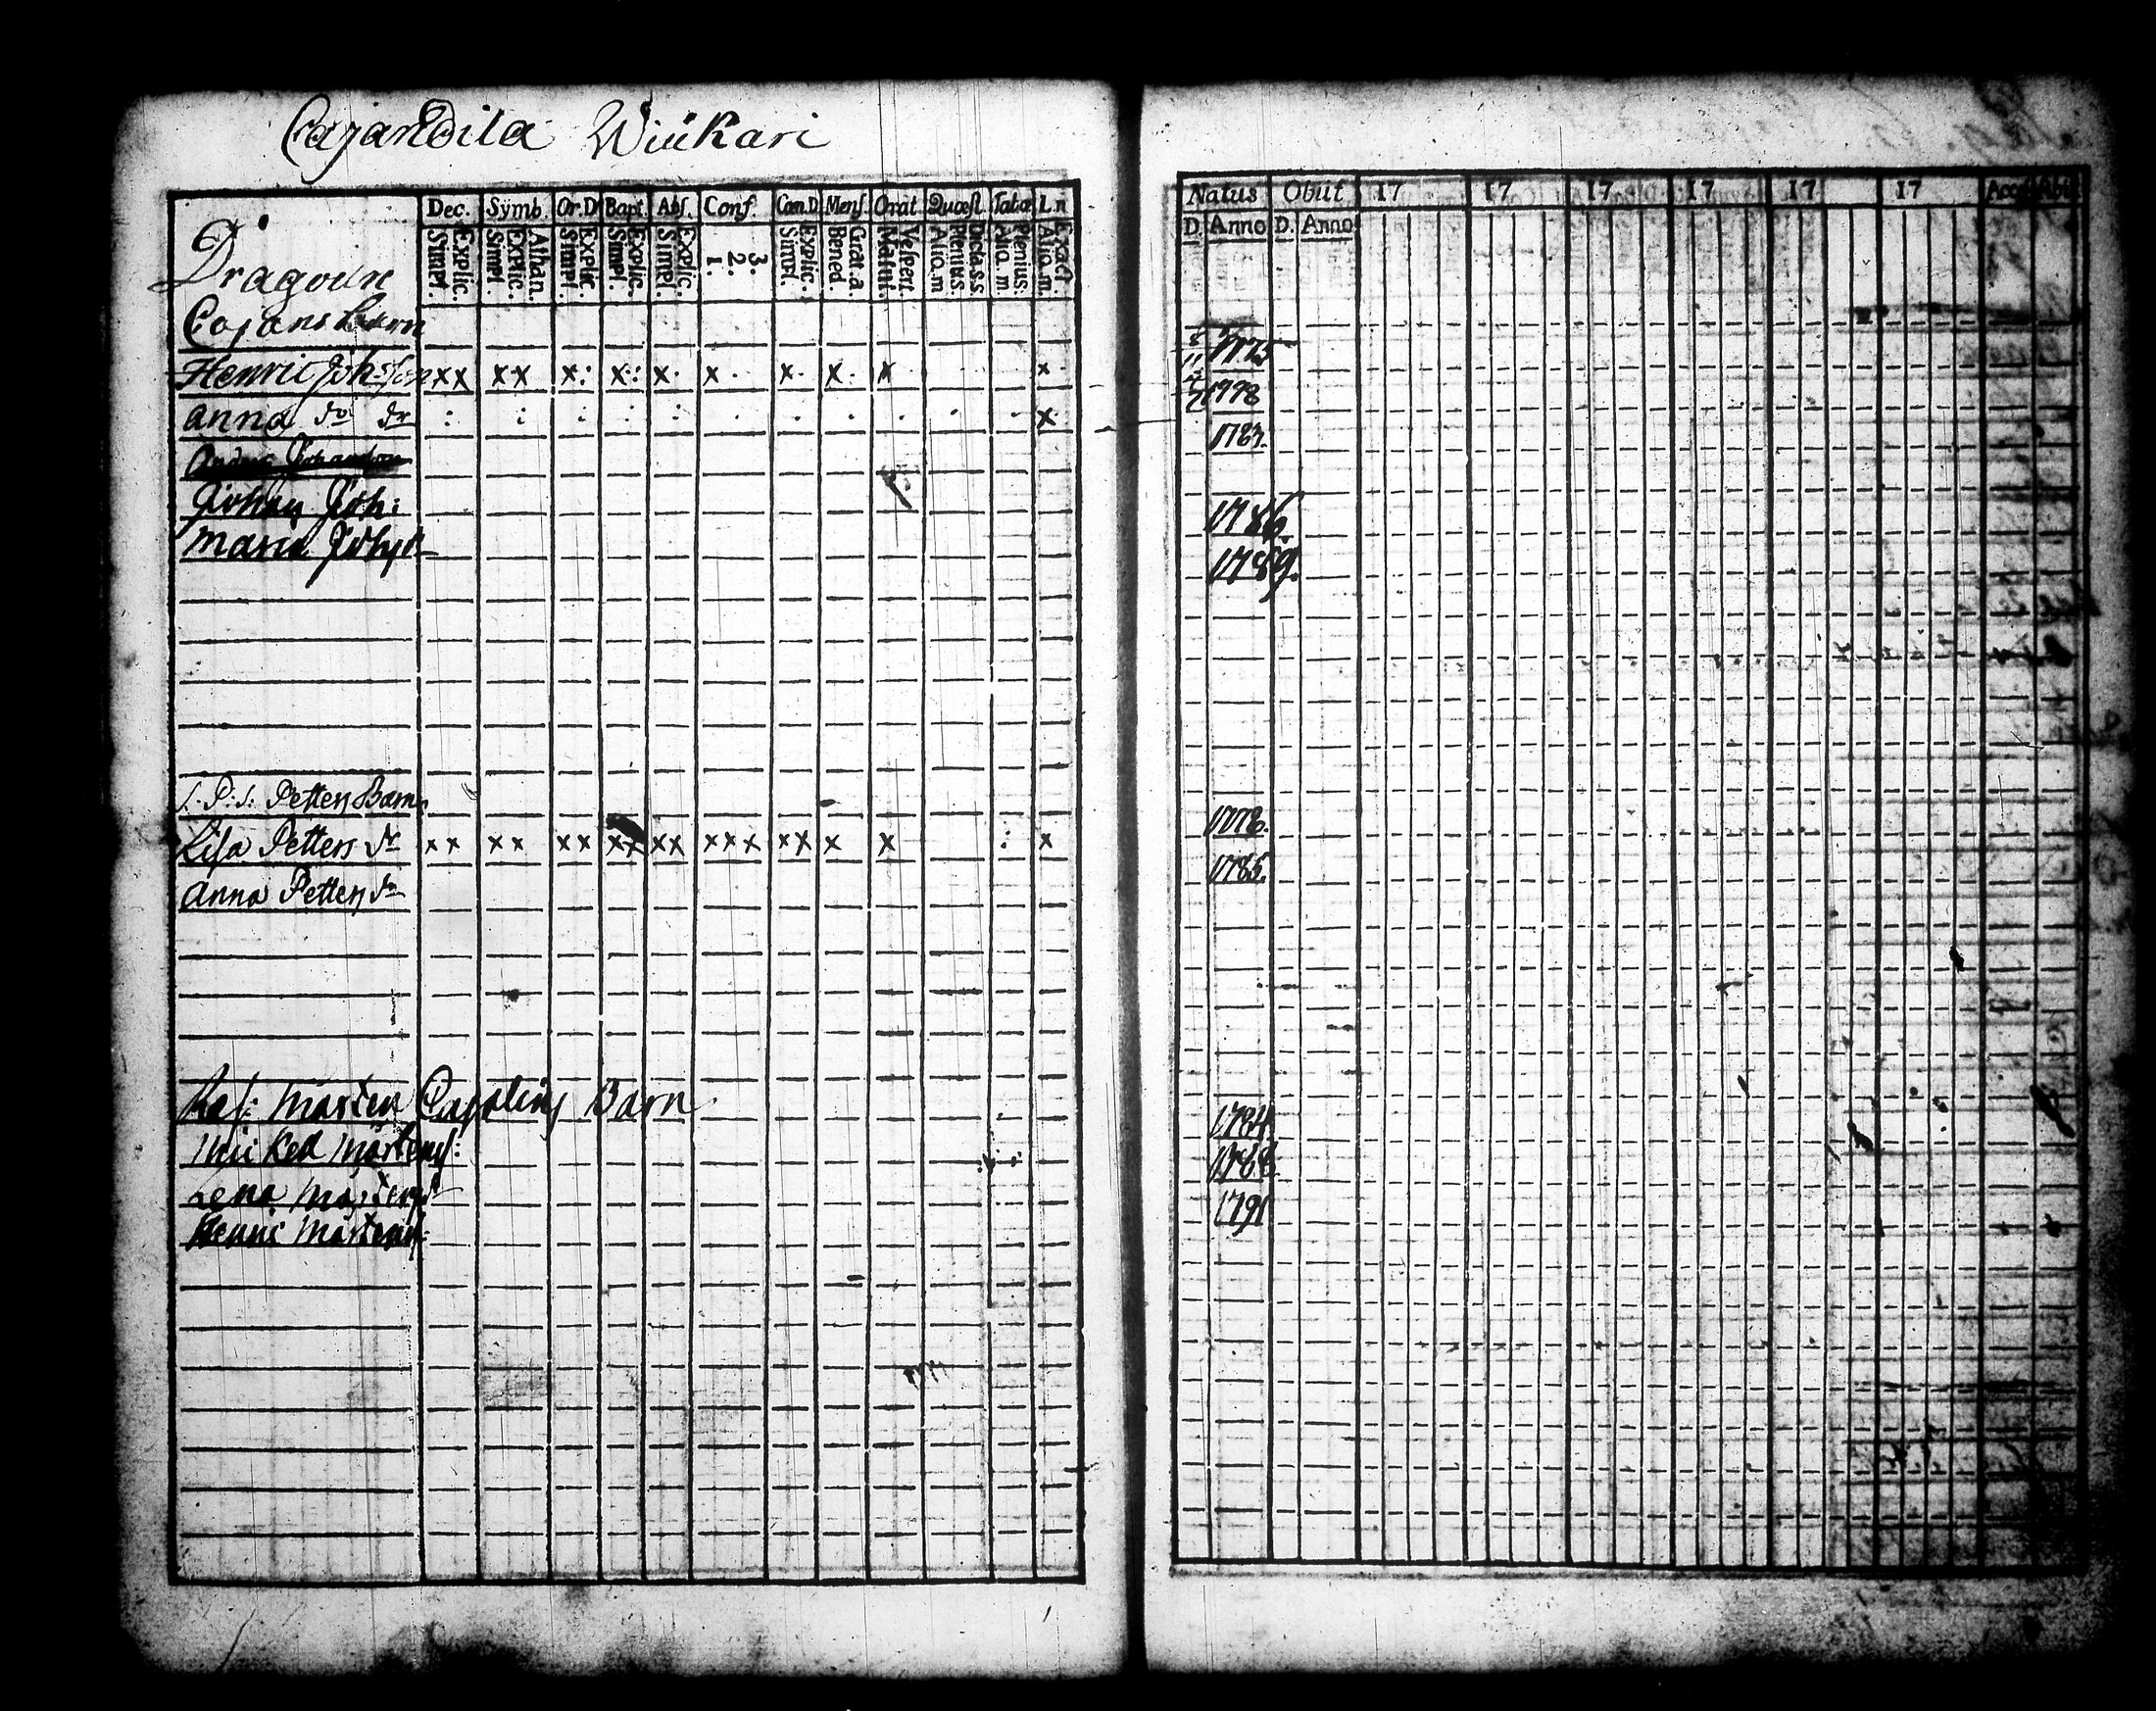 Cajandila Wiükari
Dec. Symb. Or.D Bapt. Abs. Conf. Cœn.D Mens Orat Quæst Tabæ L.n
Explic. Simpl. Athan. Explic. Simpl. Explic. Simpl. Explic. Simpl. Explic. Simpl. 3. 2. 1. Explic. Simpl. Grat.a. Bened. Vespert. Matut. Dicta.s.s. Plenius. Alio.m. Plenius. Alio.m. Exact. Alio.m.
Dragoun
Cajans Barn
Henric Johsson xx xx x: x: x. x . x. x. x x
Anna dr x
Johan Joh:
Maria Johsdr
S:P:S: Petters Barn
Lisa Petters dr xx xx xx xx xx xxx xx x x : x
Anna Petters dr
Mårten Barn
Mickel Mårtens:
Lena Mårtens dr
Henric Mårtens:
Natus Obiit 17 17 17 17 17 17
D. Anno D. Anno
1775
1778
1783.
1786.
1789.
1778.
1785.
1784
1788
1791